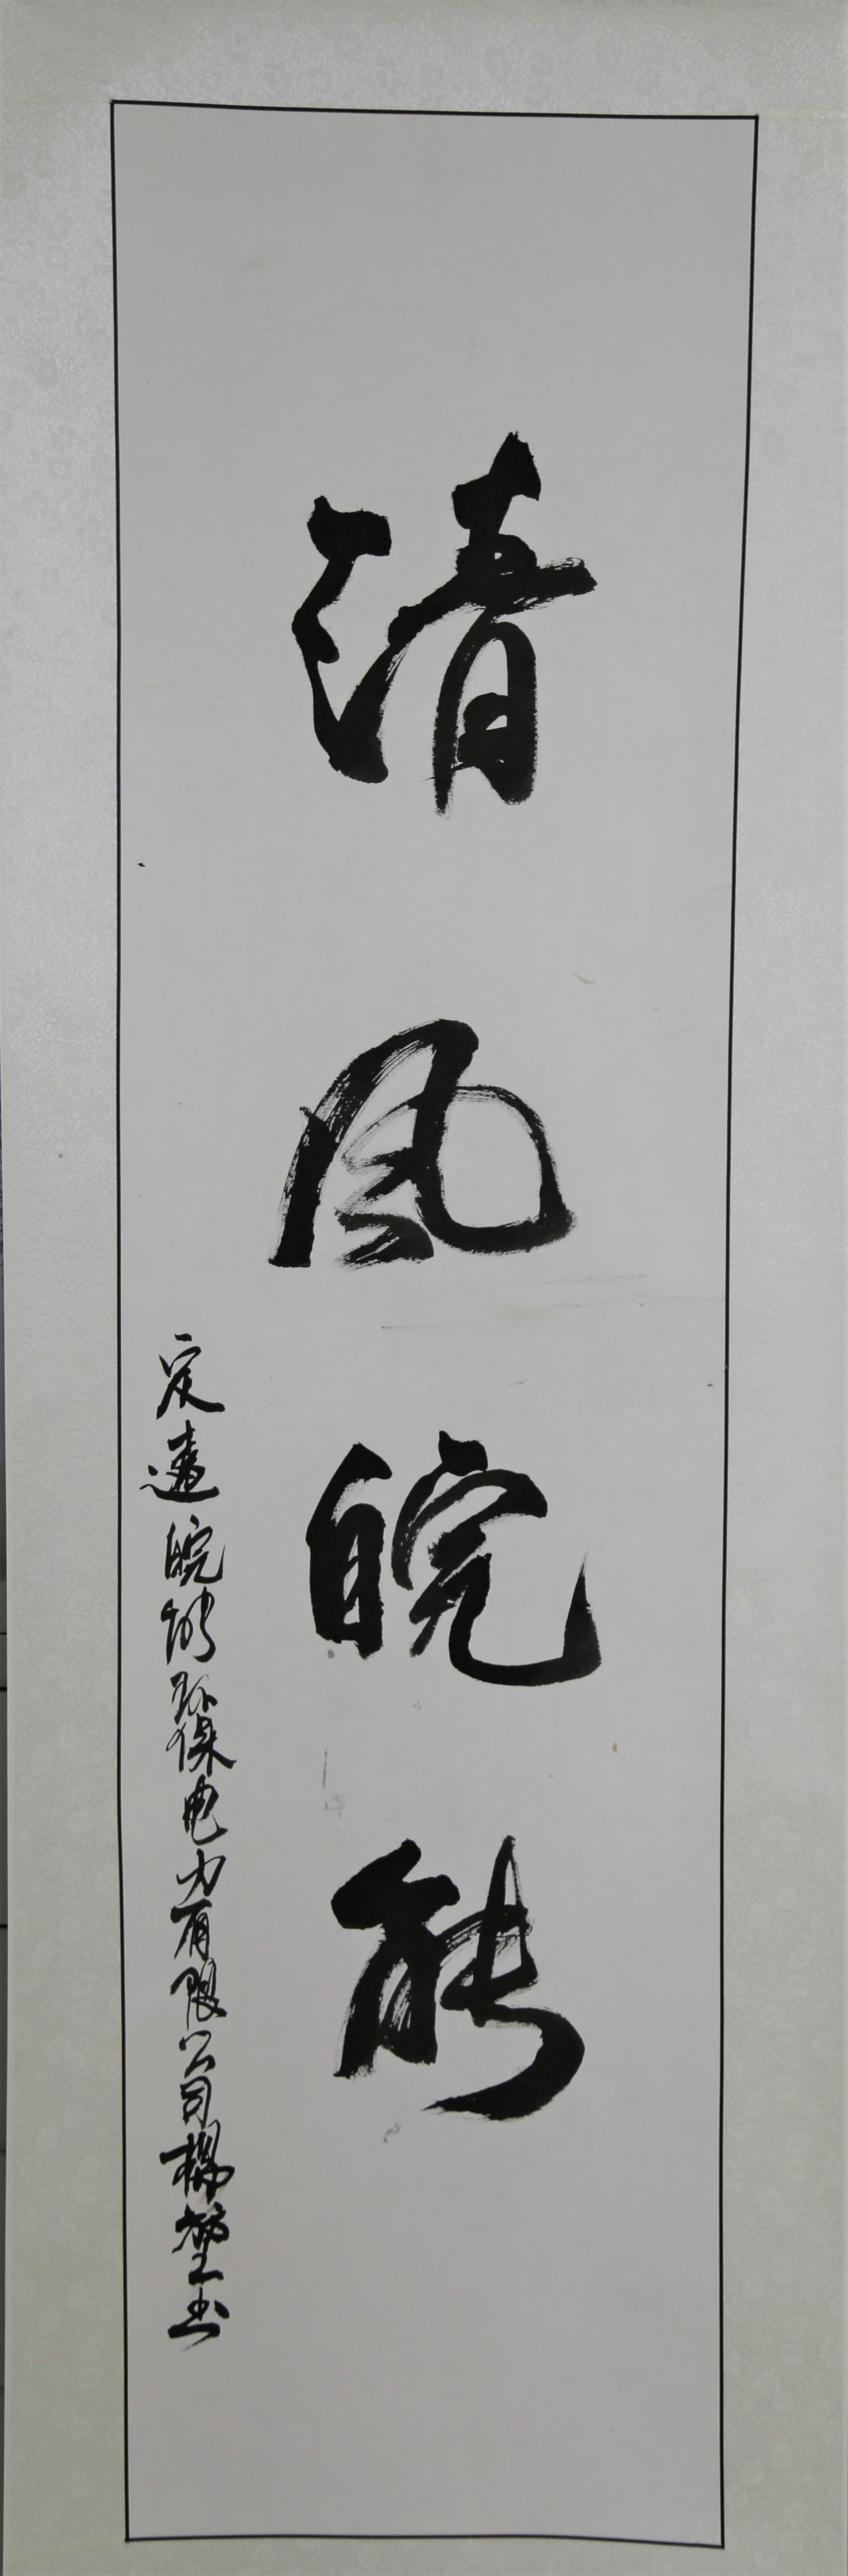 清风皖能
定远皖能环保电力有限公司杨莹书